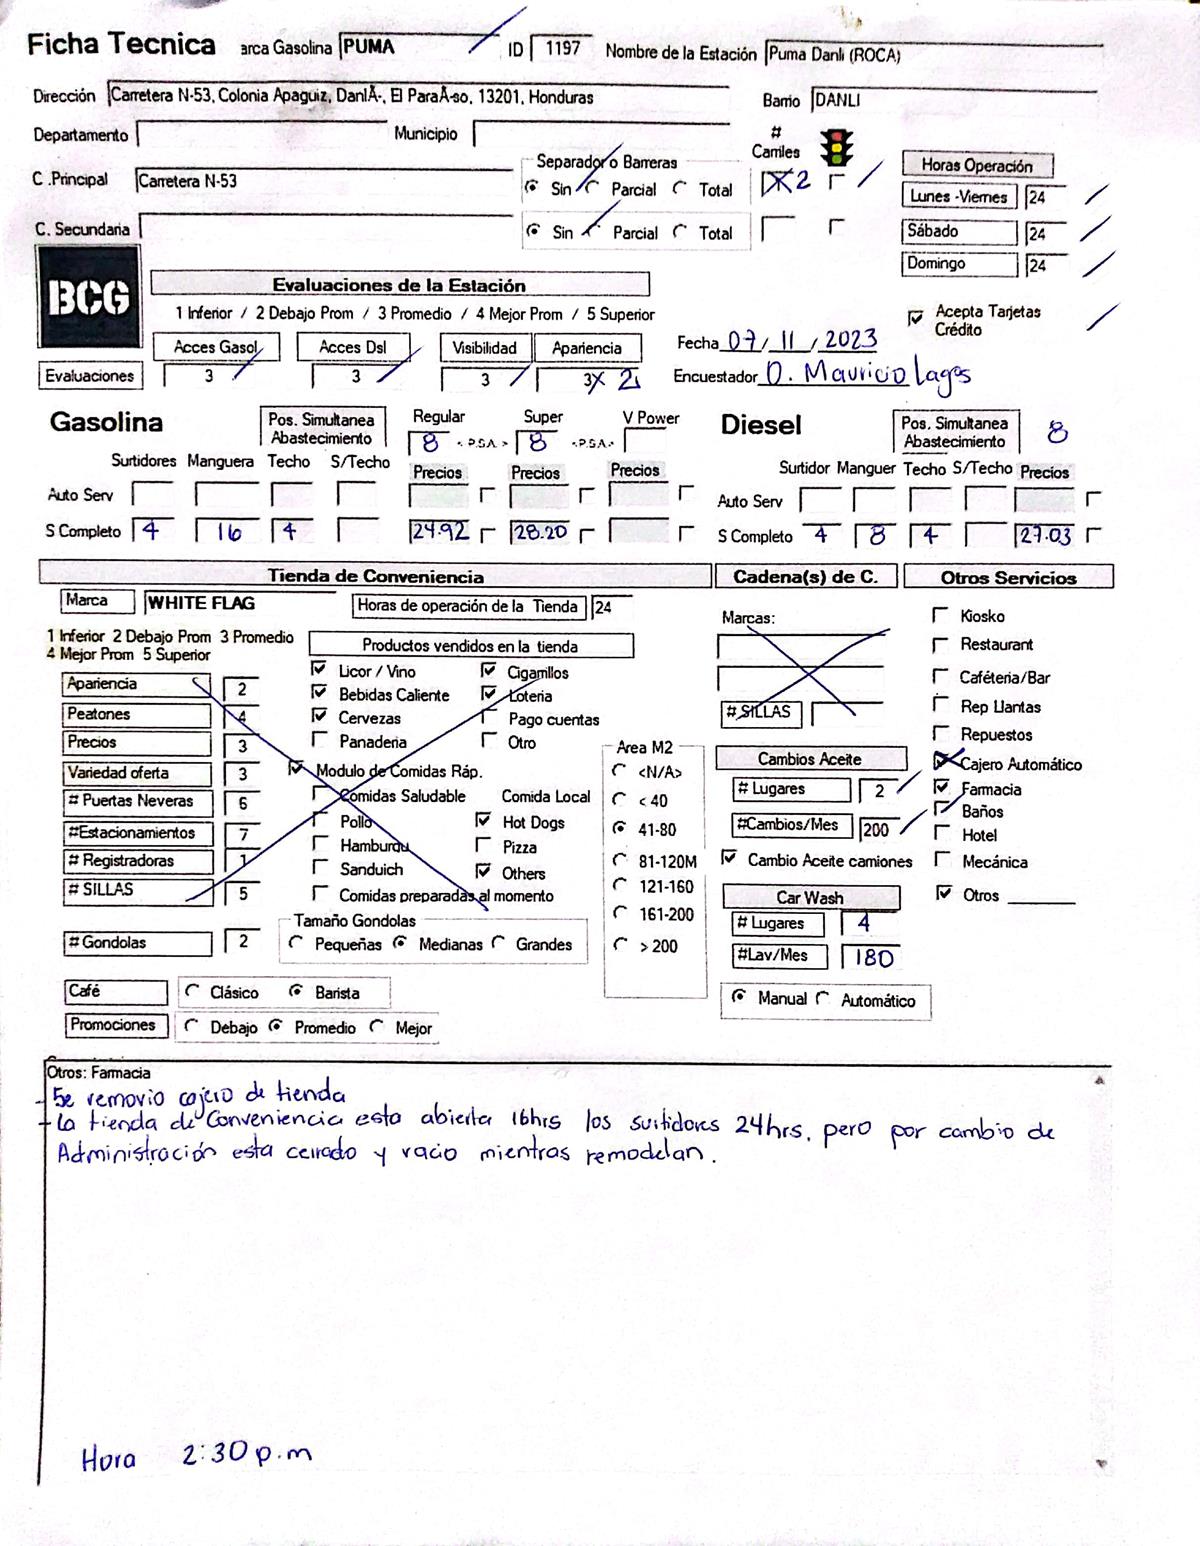 Ficha Tecnica arca Gasolina PUMA ID 1197 Nombre de la Estación Puma Danli (ROCA)
Dirección Carretera N-53, Colonia Apaguiz, DanlÃ-, El ParaÃ-so, 13201, Honduras Barrio DANLI
Departamento Municipio # Carriles
C .Principal Carretera N-53 Separador o Barreras Sin Parcial Total 2 Horas Operación
Lunes -Viernes 24
C. Secundaria Sin Parcial Total Sábado 24
Domingo 24
BCG Evaluaciones de la Estación
1 Inferior / 2 Debajo Prom / 3 Promedio / 4 Mejor Prom / 5 Superior Acepta Tarjetas Crédito
Acces Gasol Acces Dsl Visibilidad Apariencia Fecha 07/11/2023
Evaluaciones 3 3 3 3 2 Encuestador O. Mauricio Lagos
Gasolina Pos. Simultanea Abastecimiento Regular Super V Power Diesel Pos. Simultanea Abastecimiento 8
8 < P.S.A. > 8 <.P.S.A.>
Surtidores Manguera Techo S/Techo Precios Precios Precios Surtidor Manguer Techo S/Techo Precios
Auto Serv Auto Serv
S Completo 4 16 4 24.92 28.20 S Completo 4 8 4 27.03
Tienda de Conveniencia Cadena(s) de C. Otros Servicios
Marca WHITE FLAG Horas de operación de la Tienda 24 Marcas: Kiosko
1 Inferior 2 Debajo Prom 3 Promedio
4 Mejor Prom 5 Superior Productos vendidos en la tienda Restaurant
Apariencia 2 Licor / Vino Cigarrllos Caféteria/Bar
Peatones 4 Bebidas Caliente Loteria # SILLAS Rep Llantas
Cervezas Pago cuentas Repuestos
Precios 3 Panaderia Otro Area M2 Cambios Aceite Cajero Automático
Variedad oferta 3 Modulo de Comidas Ráp. <N/A> # Lugares 2 Farmacia
# Puertas Neveras 6 Comidas Saludable Comida Local < 40 Baños
#Estacionamientos 7 Pollo Hot Dogs 41-80 #Cambios/Mes 200 Hotel
# Registradoras 1 Hamburgu Pizza 81-120M Cambio Aceite camiones Mecánica
# SILLAS 5 Sanduich Others 121-160 Car Wash Otros
Comidas preparadas al momento 161-200 # Lugares 4
# Gondolas 2 Tamaño Gondolas Pequeñas Medianas Grandes > 200 #Lav/Mes 180
Café Clásico Barista Manual Automático
Promociones Debajo Promedio Mejor
Otros: Farmacia
- Se removio cajero de tienda
- La tienda de Conveniencia esta abierta 16hrs los surtidores 24hrs, pero por cambio de
Administración esta cerrado y vacio mientras remodelan.
Hora 2:30 p.m